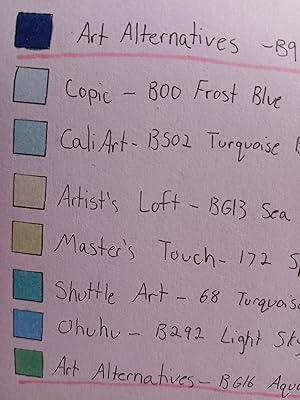 Art Alternatives -B9
Copic - B00 Frost Blue
CaliArt- B502 Turquoise
Artist's Loft - BG13 Sea
Master's Touch- 172
Shuttle Art - 68 Turquois
Ohuhu - B292 Light Sk
Art Alternatives - BG16 Aqua